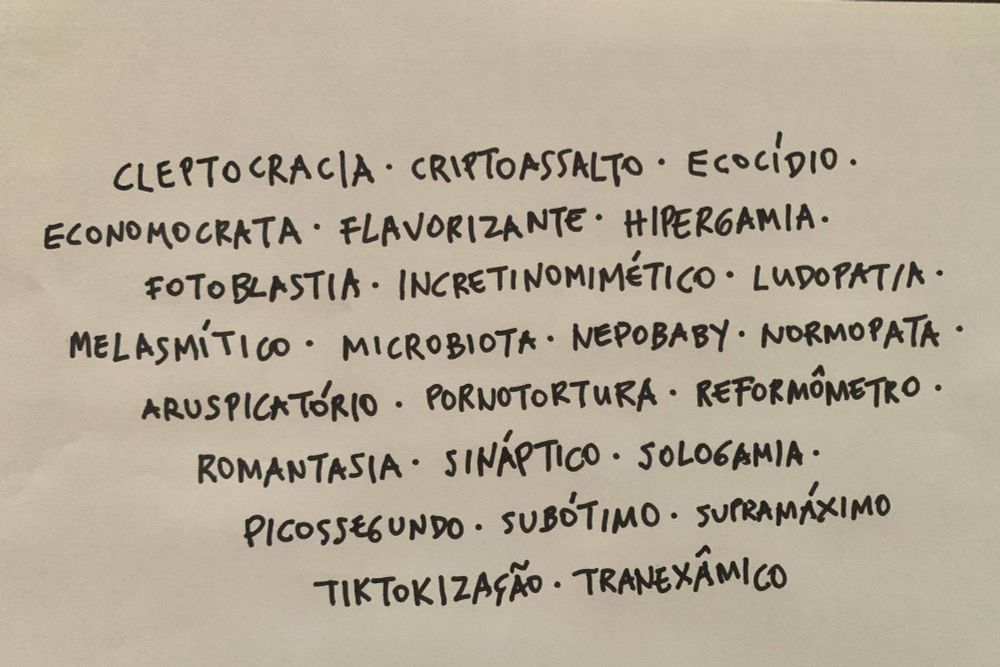 CLEPTOCRACIA · CRIPTOASSALTO · ECOCÍDIO ·
ECONOMOCRATA · FLAVORIZANTE · HIPERGAMIA ·
FOTOBLASTIA · INCRETINOMIMÉTICO · LUDOPATIA ·
MELASMÍTICO · MICROBIOTA · NEPOBABY · NORMOPATA ·
ARUSPICATÓRIO · PORNOTORTURA · REFORMÔMETRO ·
ROMANTASIA · SINÁPTICO · SOLOGAMIA ·
PICOSSEGUNDO · SUBÓTIMO · SUPRAMÁXIMO
TIKTOKIZAÇÃO · TRANEXÂMICO